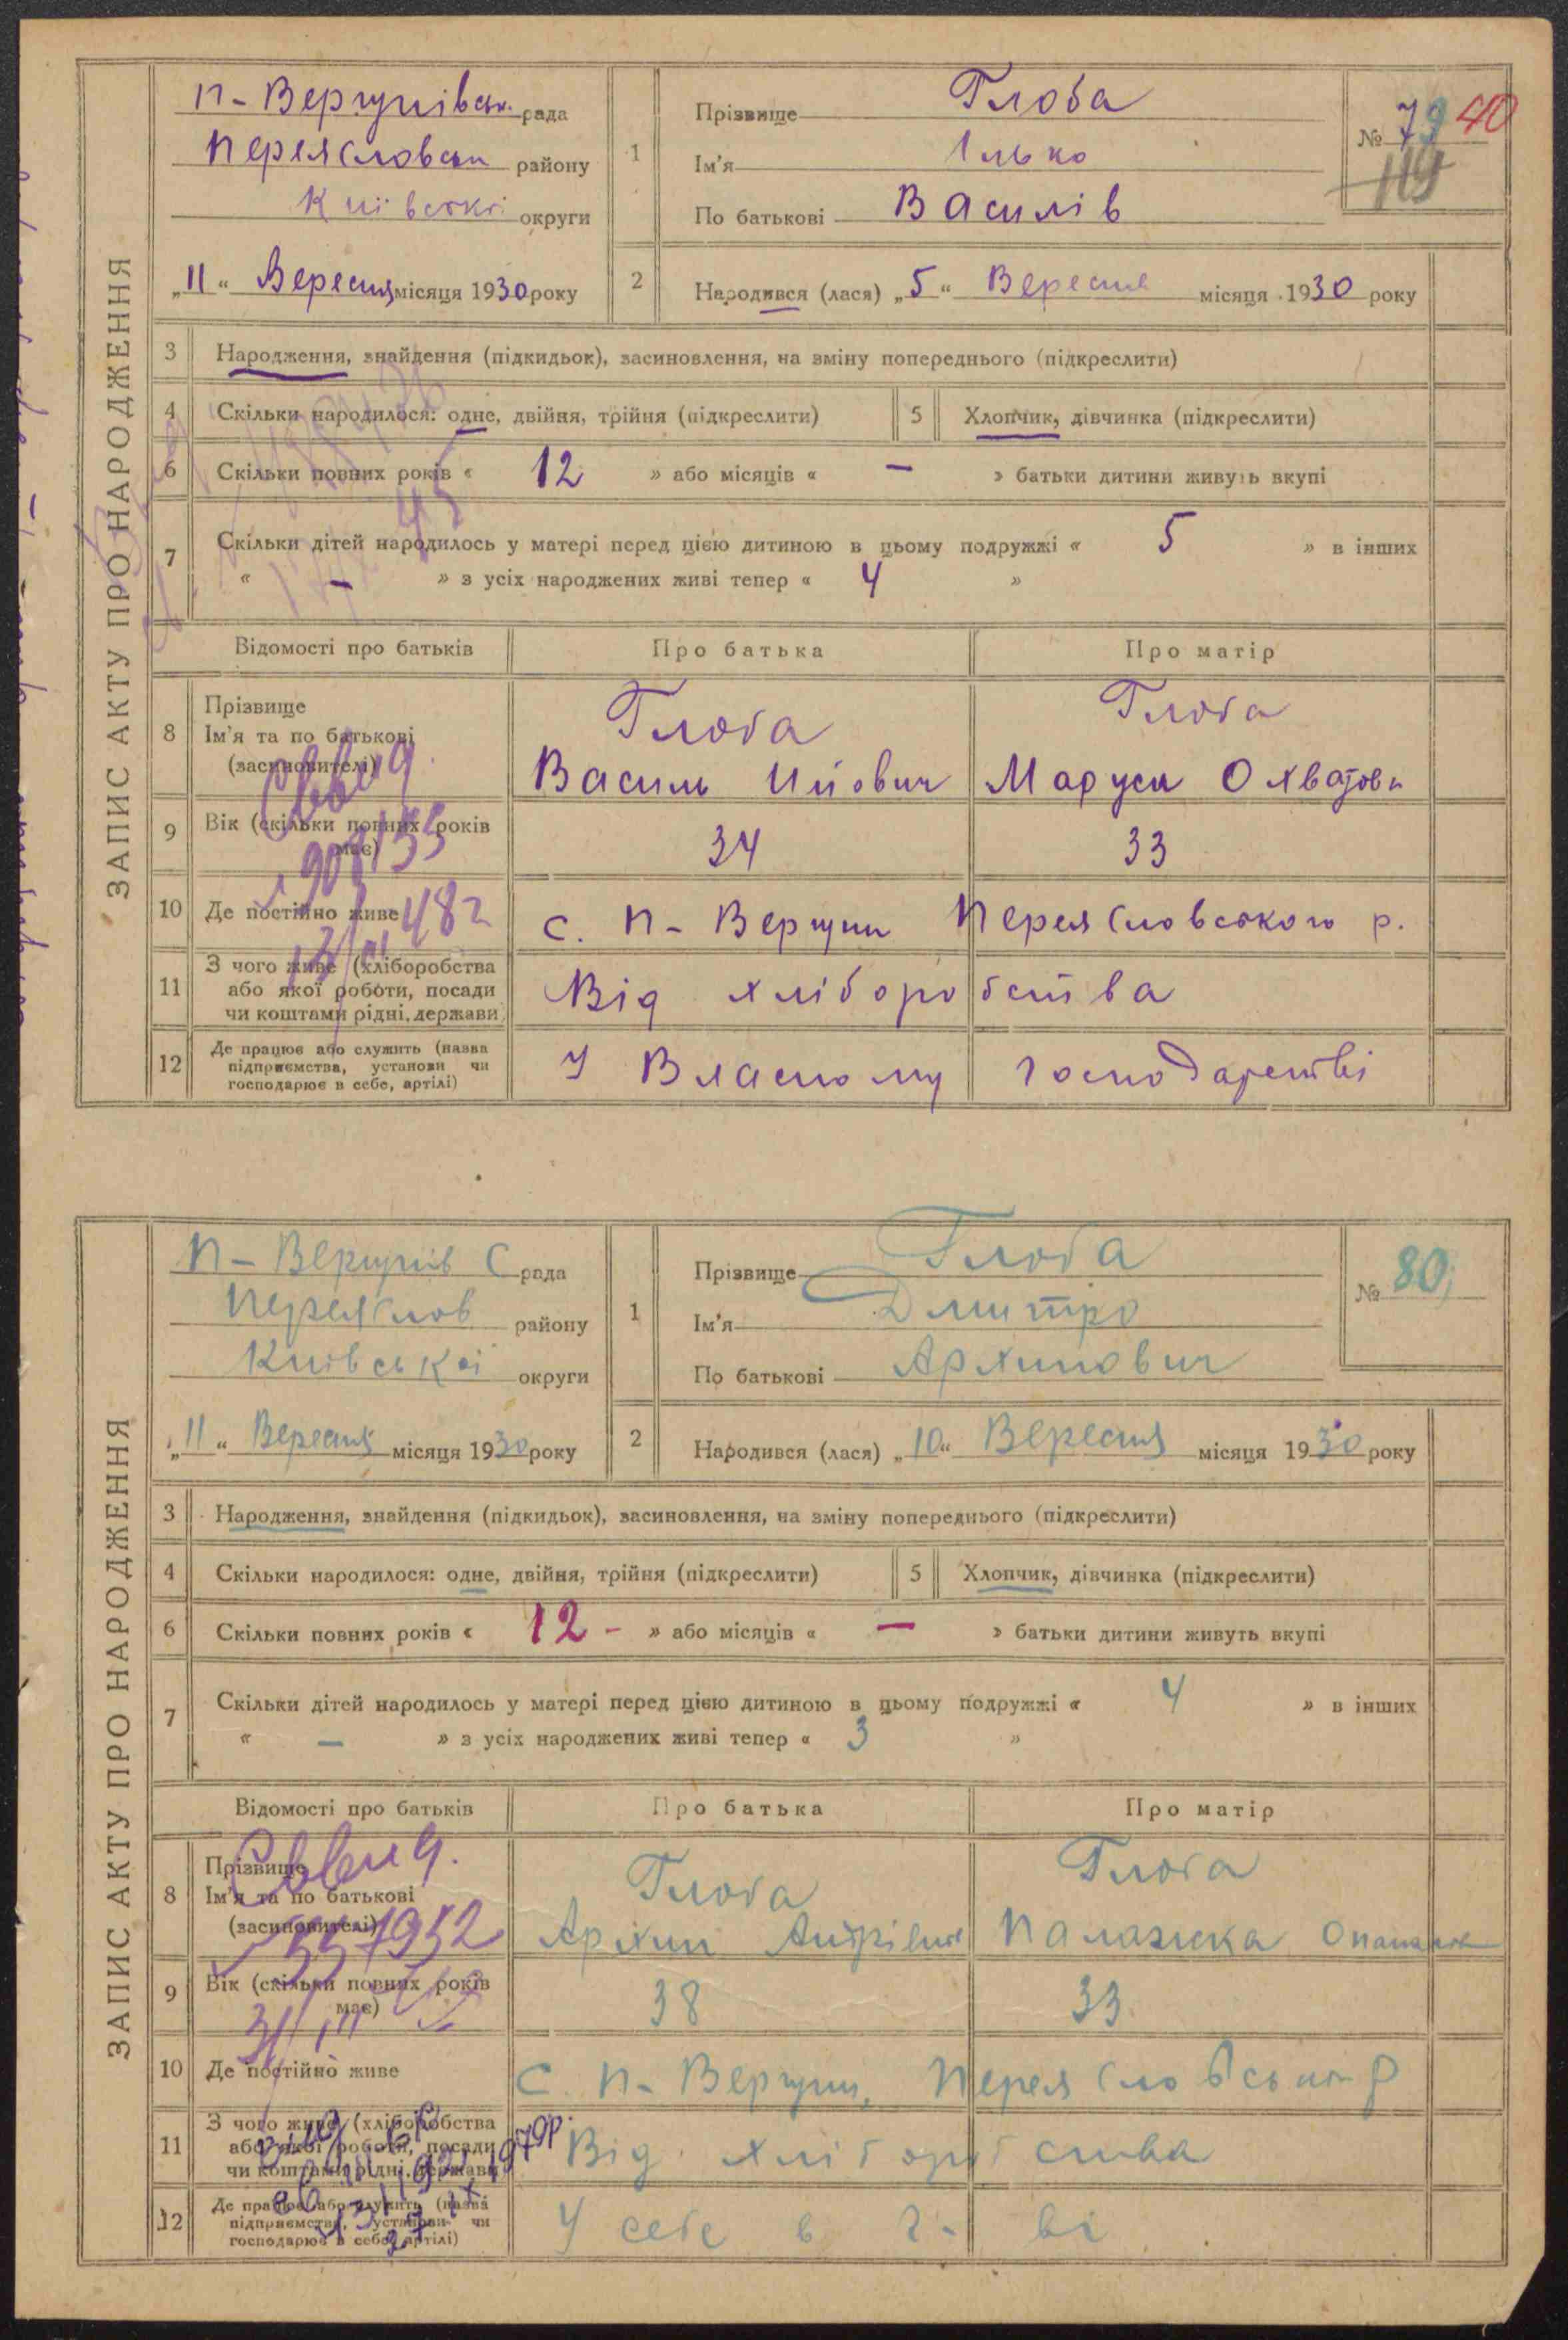 ЗАПИС АКТУ ПРО НАРОДЖЕННЯ
п-Вергунівськ. рада
Переясловськ району
Київської округи
„11“ Вересня місяця 1930 року
1
Прізвище Глоба
Ім'я Ілько
По батькові Василів
№ 79 40
119
2
Народився (лася) „5“ Вересня місяця 1930 року
3 Народження, знайдення (підкидьок), засиновлення, на зміну попереднього (підкреслити)
4 Скільки народилося: одне, двійня, трійня (підкреслити) 5 Хлопчик, дівчинка (підкреслити)
6 Скільки повних років « 12 » або місяців « — » батьки дитини живуть вкупі
7 Скільки дітей народилось у матері перед цією дитиною в цьому подружжі « 5 » в інших
« — » з усіх народжених живі тепер « 4 »
Відомості про батьків Про батька Про матір
8 Прізвище Ім'я та по батькові (засиновителі)
Глоба Глоба
Василь Маруся
9 Вік (скільки повних років має) 34 33
10 Де постійно живе с. п-Вергуни Переясловського р.
11 З чого живе (хліборобства або якої роботи, посади чи коштами рідні, держави) Від хліборобства
12 Де працює або служить (назва підприємства, установи чи господарює в себе, артілі) У Власному господарстві
ЗАПИС АКТУ ПРО НАРОДЖЕННЯ
п-Вергунів С рада
Переяслов району
Київської округи
„11“ Вересня місяця 1930 року
1
Прізвище Глоба
Ім'я Дмитро
По батькові Архипович
№ 80
2
Народився (лася) „10“ Вересня місяця 1930 року
3 Народження, знайдення (підкидьок), засиновлення, на зміну попереднього (підкреслити)
4 Скільки народилося: одне, двійня, трійня (підкреслити) 5 Хлопчик, дівчинка (підкреслити)
6 Скільки повних років « 12 - » або місяців « — » батьки дитини живуть вкупі
7 Скільки дітей народилось у матері перед цією дитиною в цьому подружжі « 4 » в інших
« — » з усіх народжених живі тепер « 3 »
Відомості про батьків Про батька Про матір
8 Прізвище Ім'я та по батькові (засиновителі)
Глоба Глоба
Архип Палажка
9 Вік (скільки повних років має) 38 33
10 Де постійно живе с. п-Вергуни,
11 З чого живе (хліборобства або якої роботи, посади чи коштами рідні, держави) Від хліборобства
12 Де працює або служить (назва підприємства, установи чи господарює в себе, артілі) У себе в г-ві